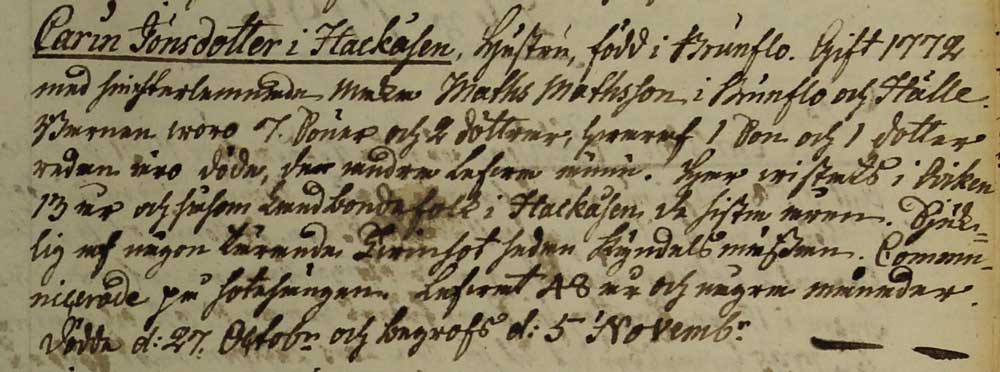 Carin Jönsdotter i Hackåsen, Hustru, född i Brunflo. Gift 1772
med hinterlemnade Make Maths Mathsson i Brunflo och Hälle.
Barnen woro 7 Söner och 2 döttrar, hwaraf 1 Son och 1 dotter
redan äro döde, de andra lefwa ännu. Har wistats i Soknen
13 år och såsom Landbondefolk i Hackåsen de sista åren. Sjuk-
lig af någon tärande sedan Kyndelsmässan. Commu-
nicerade på sotesängen. Lefwat 48 år och några månader.
Dödde d: 27. Octobr och begrofs d: 5 Novembr